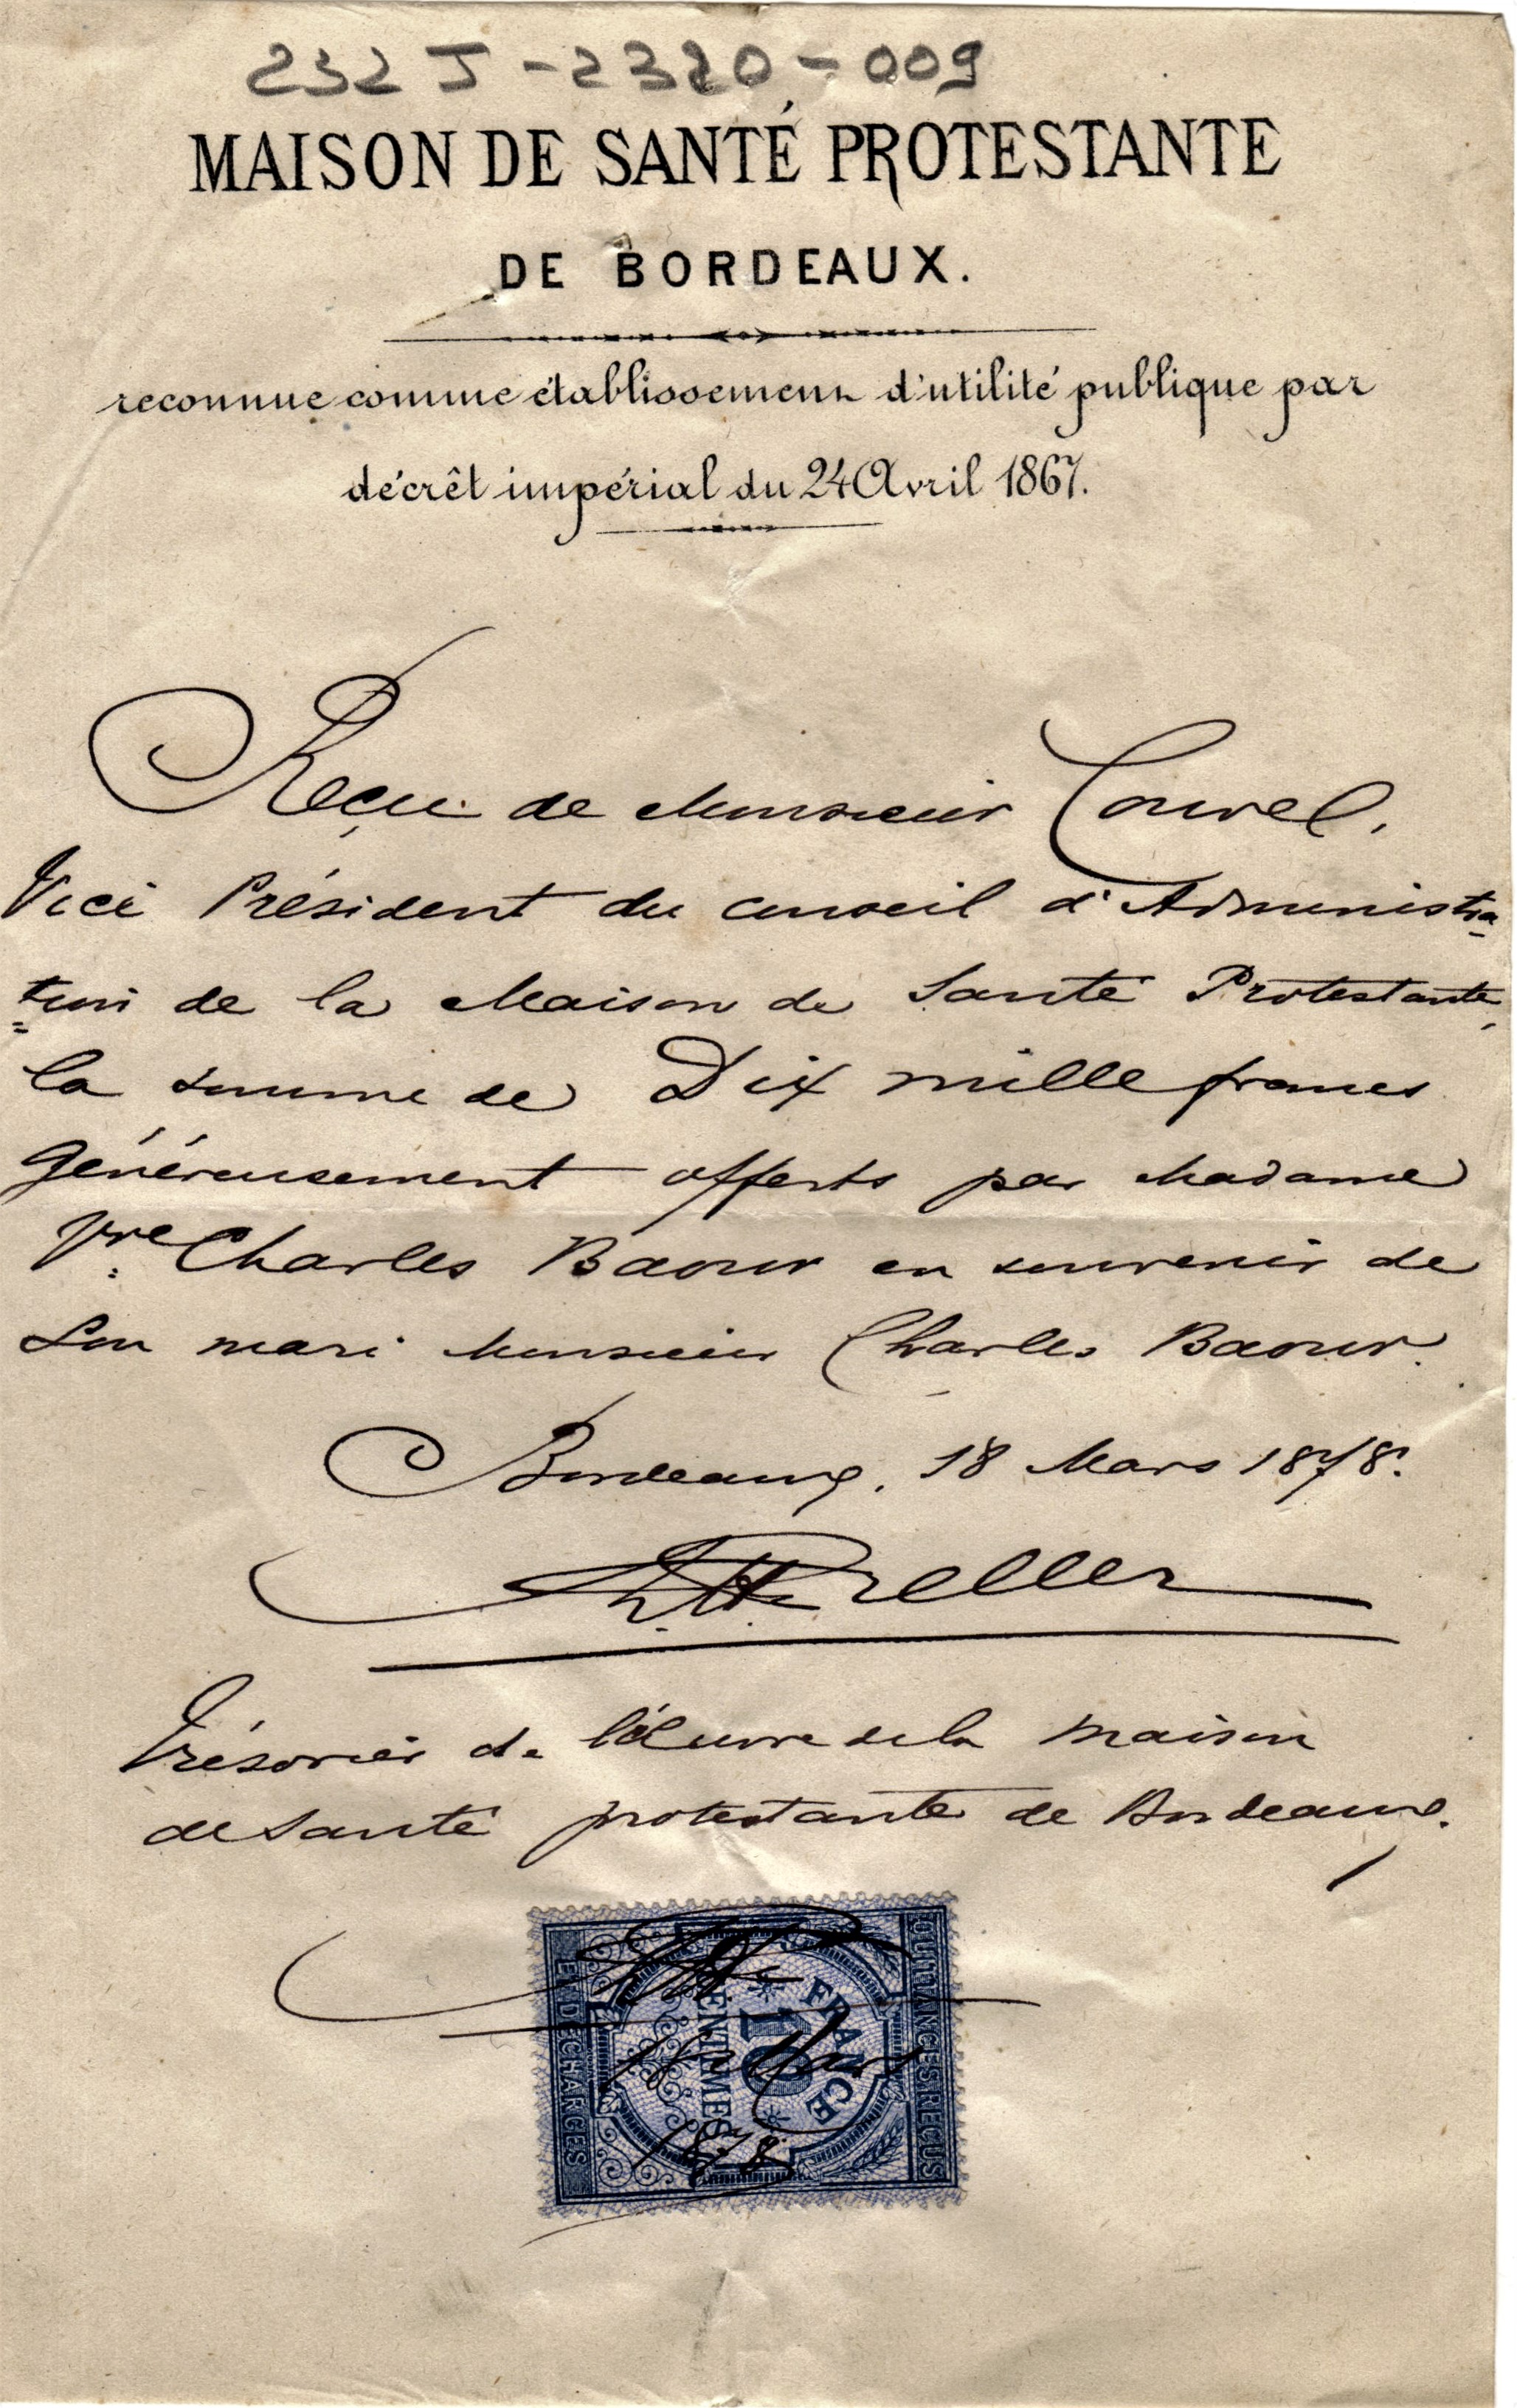 232 J - 2320 - 009
MAISON DE SANTÉ PROTESTANTE
DE BORDEAUX.
reconnue comme établissement d'utilité publique par
décrêt impérial du 24 Avril 1867.
Reçu de Monsieur Courvel.
Vice Président du conseil d'Administra
tion de la Maison de Santé Protestante,
la somme de Dix mille francs
généreusement offerts par Madame
Vve Charles Baour en souvenir de
Son mari Monsieur Charles Baour.
Bordeaux, 18 Mars 1878.
Preller
Trésorier de l'Œuvre de la Maison
de Santé protestante de Bordeaux.
QUITTANCES REÇUS
FRANCE
10
CENTIMES
ET DÉCHARGES
18 Mars
1878